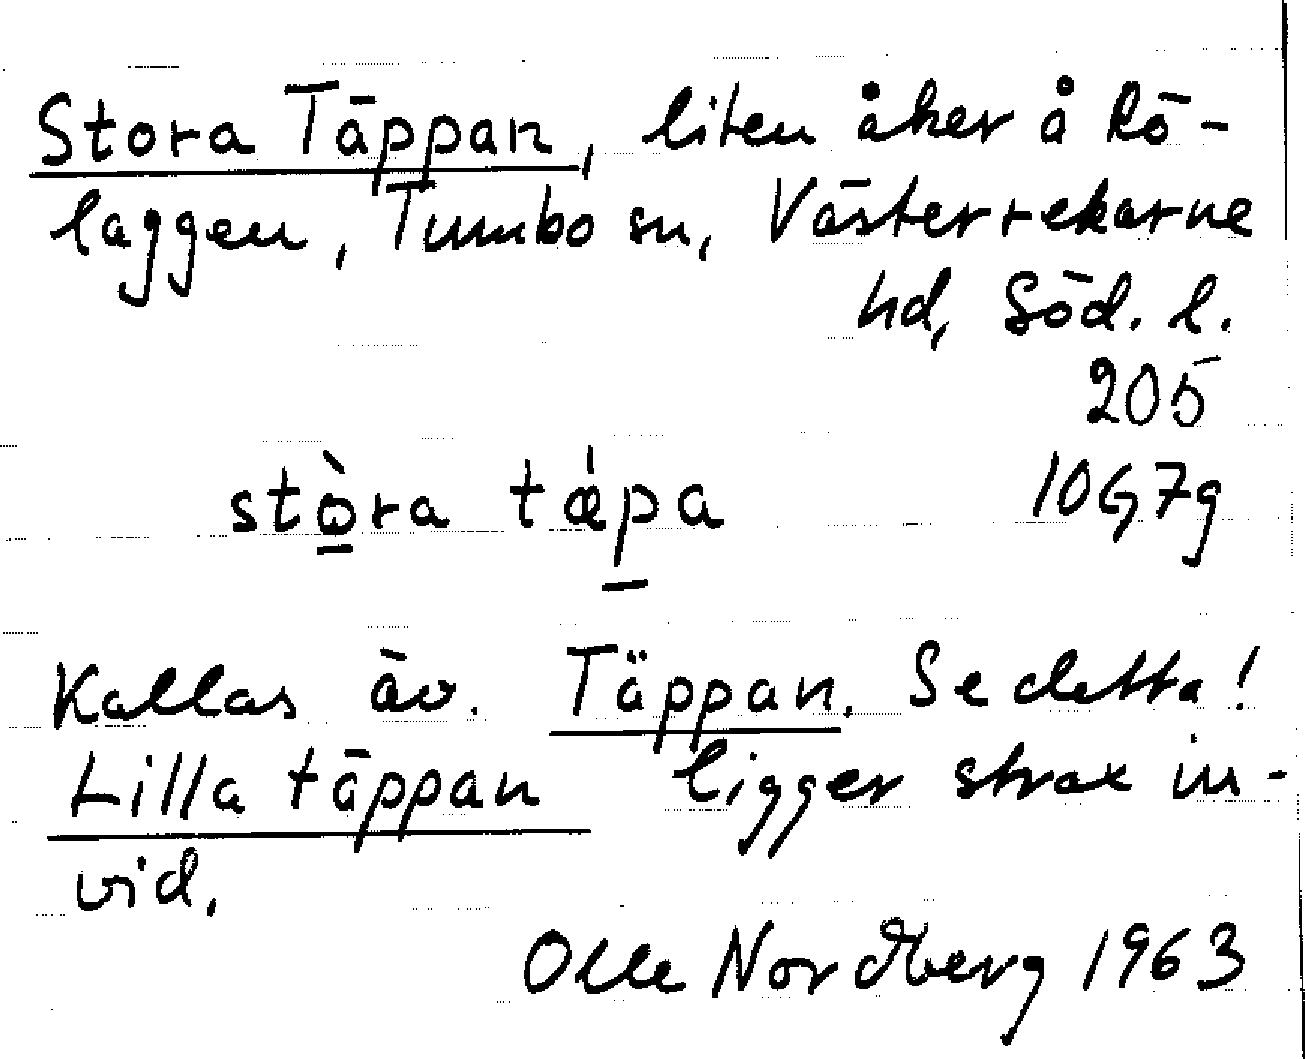 Stora Täppan, liten åker å Rö-
laggen, Tumbo sn, Västerrekarne
hd, Söd. l.
205
10G7g
stò̱ra tǽp̱a
Kallas äv. Täppan. Se detta!
Lilla täppan ligger strax in-
vid.
Olle Nordberg 1963